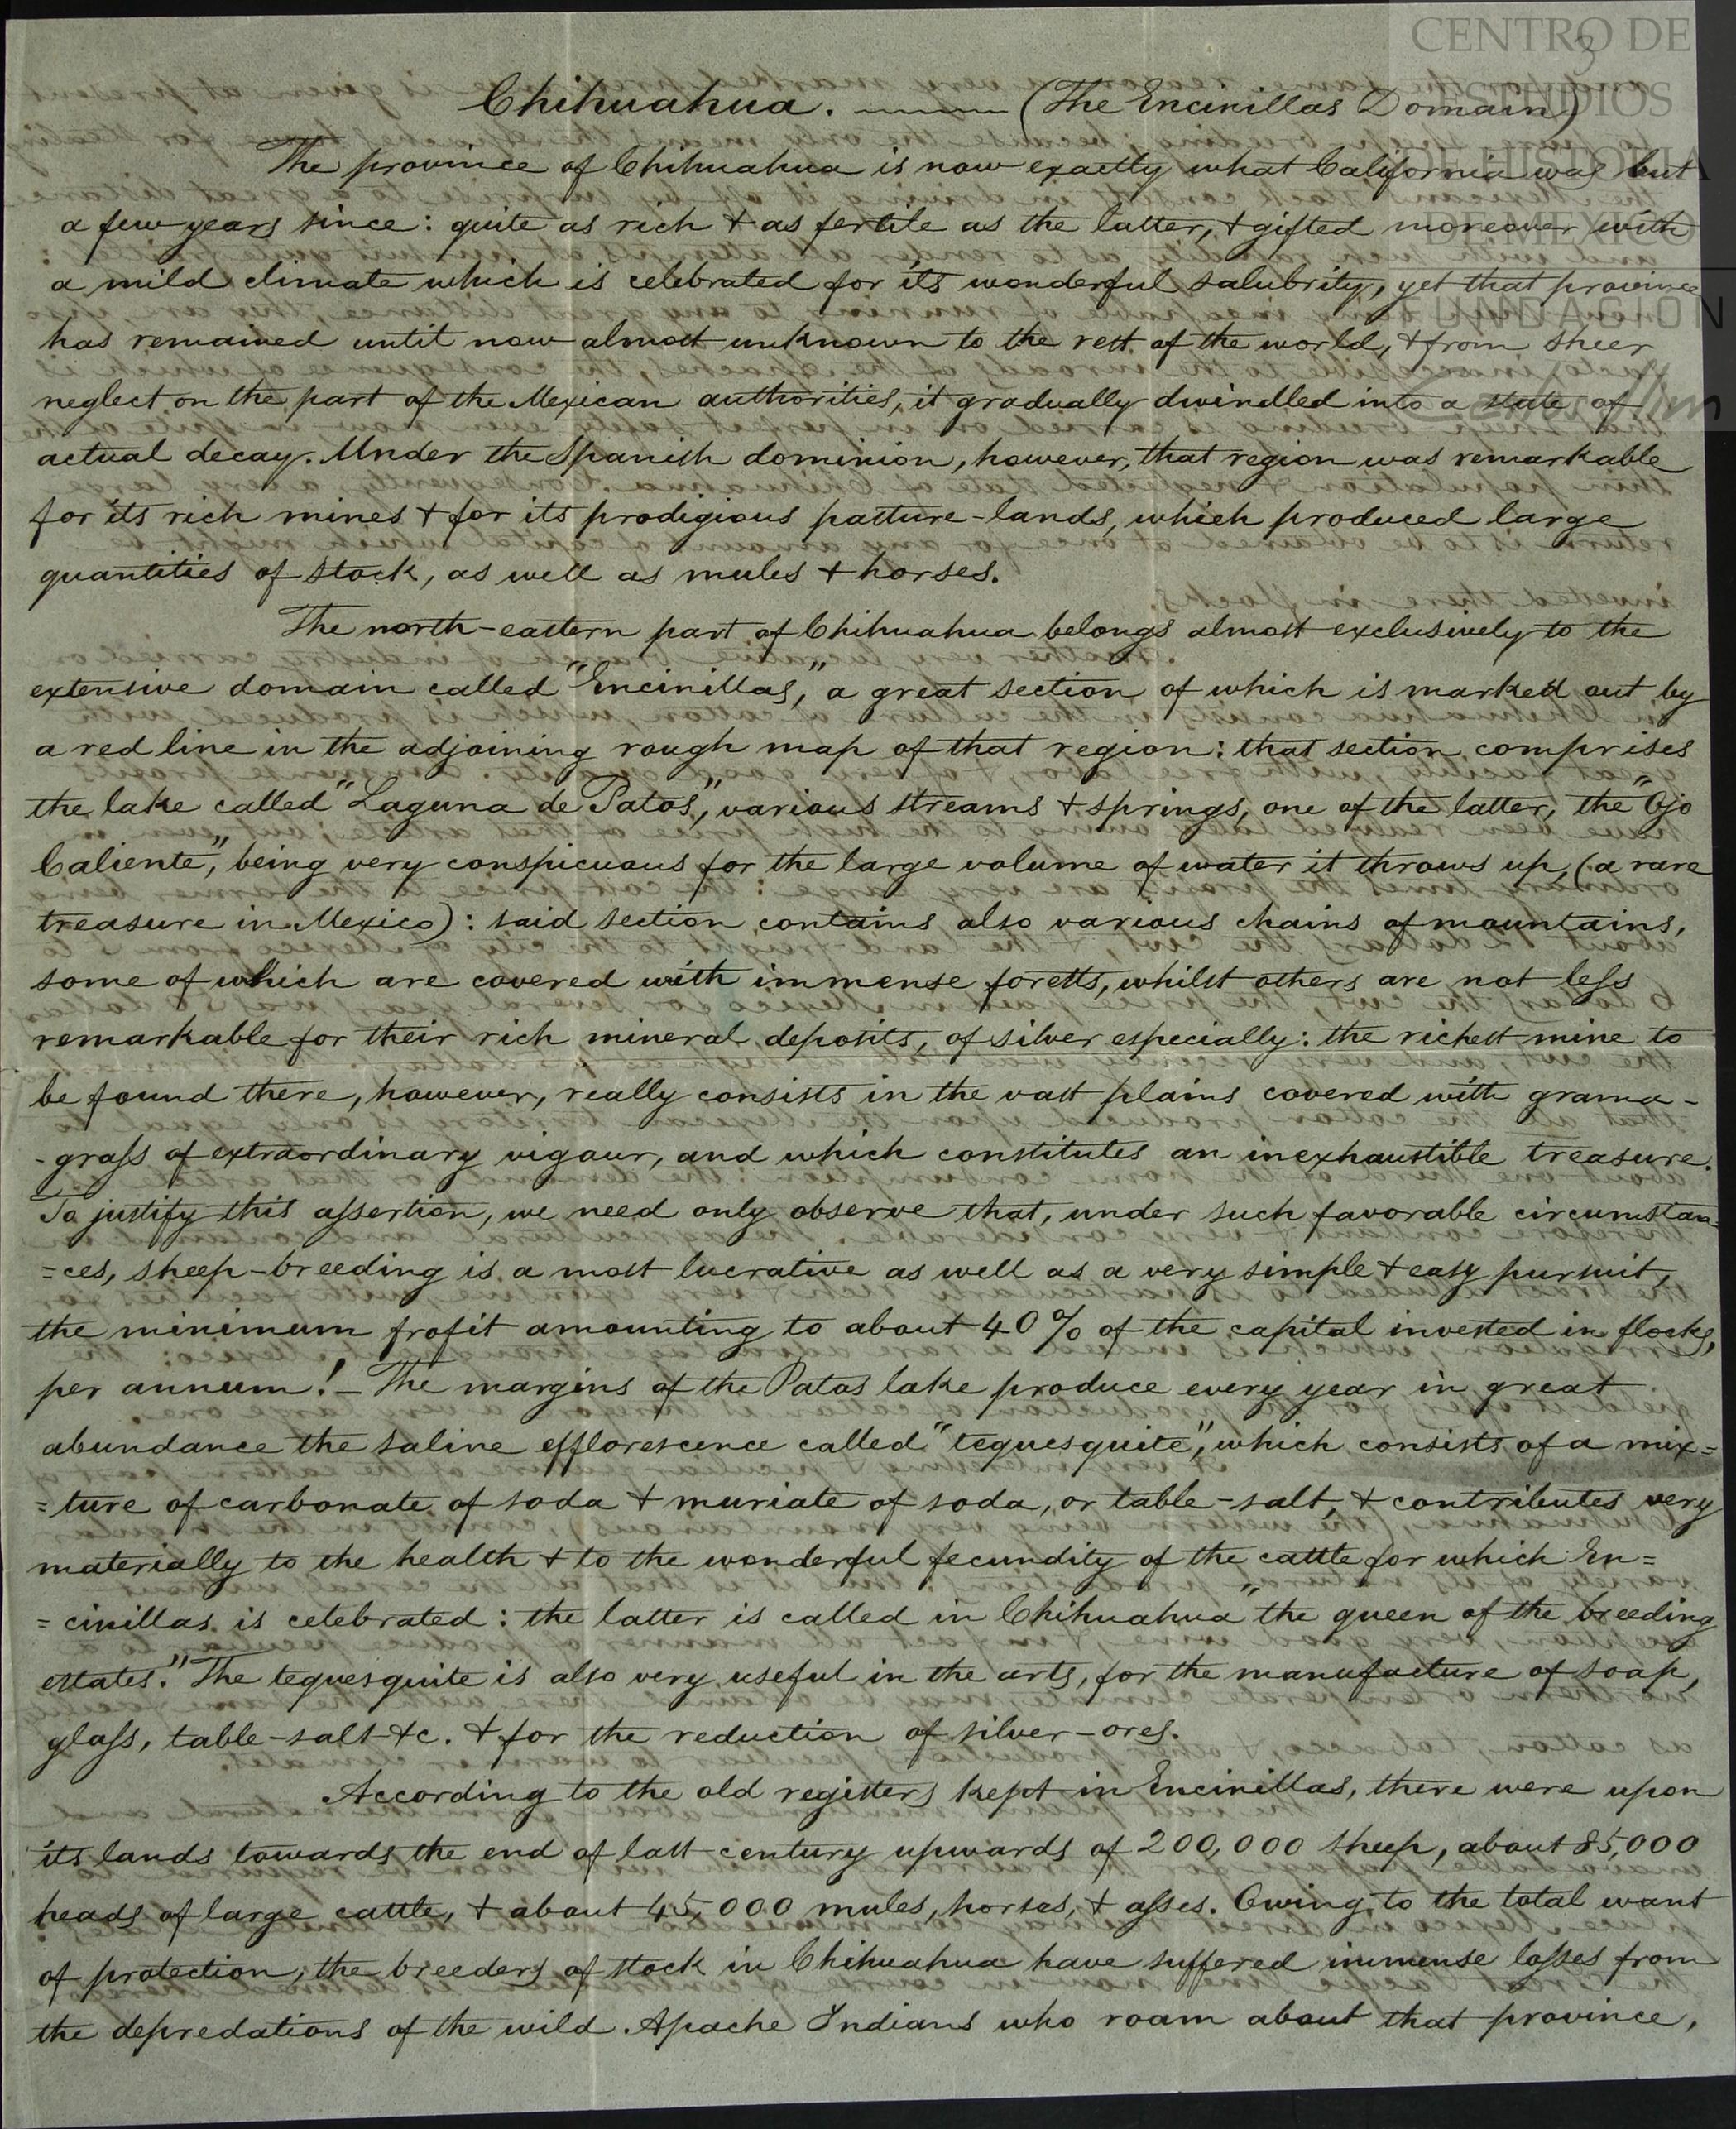 CENTRO DE
ESTUDIOS
DE HISTORIA
DE MEXICO
FUNDACIÓN
Carlos Slim
3
Chihuahua. ——— (The Encinillas Domain)
The province of Chihuahua is now exactly what California was but
a few years since: quite as rich & as fertile as the latter, & gifted moreover with
a mild climate which is celebrated for its wonderful salubrity, yet that province
has remained until now almost unknown to the rest of the world, & from sheer
neglect on the part of the Mexican authorities, it gradually dwindled into a state of
actual decay. Under the Spanish dominion, however, that region was remarkable
for its rich mines & for its prodigious pasture-lands, which produced large
quantities of stock, as well as mules & horses.
The north-eastern part of Chihuahua belongs almost exclusively to the
extensive domain called "Encinillas," a great section of which is marked out by
a red line in the adjoining rough map of that region: that section comprises
the lake called "Laguna de Patos," various streams & springs, one of the latter, the "Ojo
Caliente," being very conspicuous for the large volume of water it throws up, (a rare
treasure in Mexico): said section contains also various chains of mountains,
some of which are covered with immense forests, whilst others are not less
remarkable for their rich mineral deposits, of silver especially: the richest mine to
be found there, however, really consists in the vast plains covered with grama-
-grass of extraordinary vigour, and which constitutes an inexhaustible treasure.
To justify this assertion, we need only observe that, under such favorable circumstan=
=ces, sheep-breeding is a most lucrative as well as a very simple & easy pursuit,
the minimum profit amounting to about 40% of the capital invested in flocks,
per annum! – The margins of the Patos lake produce every year in great
abundance the saline efflorescence called "tequesquite", which consists of a mix=
=ture of carbonate of soda & muriate of soda, or table-salt, & contributes very
materially to the health & to the wonderful fecundity of the cattle for which En=
=cinillas is celebrated: the latter is called in Chihuahua "the queen of the breeding
estates." The tequesquite is also very useful in the arts, for the manufacture of soap,
glass, table-salt &c. & for the reduction of silver-ores.
According to the old registers kept in Encinillas, there were upon
its lands towards the end of last century upwards of 200,000 sheep, about 85,000
heads of large cattle, & about 45,000 mules, horses, & asses. Owing to the total want
of protection, the breeders of stock in Chihuahua have suffered immense losses from
the depredations of the wild Apache Indians who roam about that province,